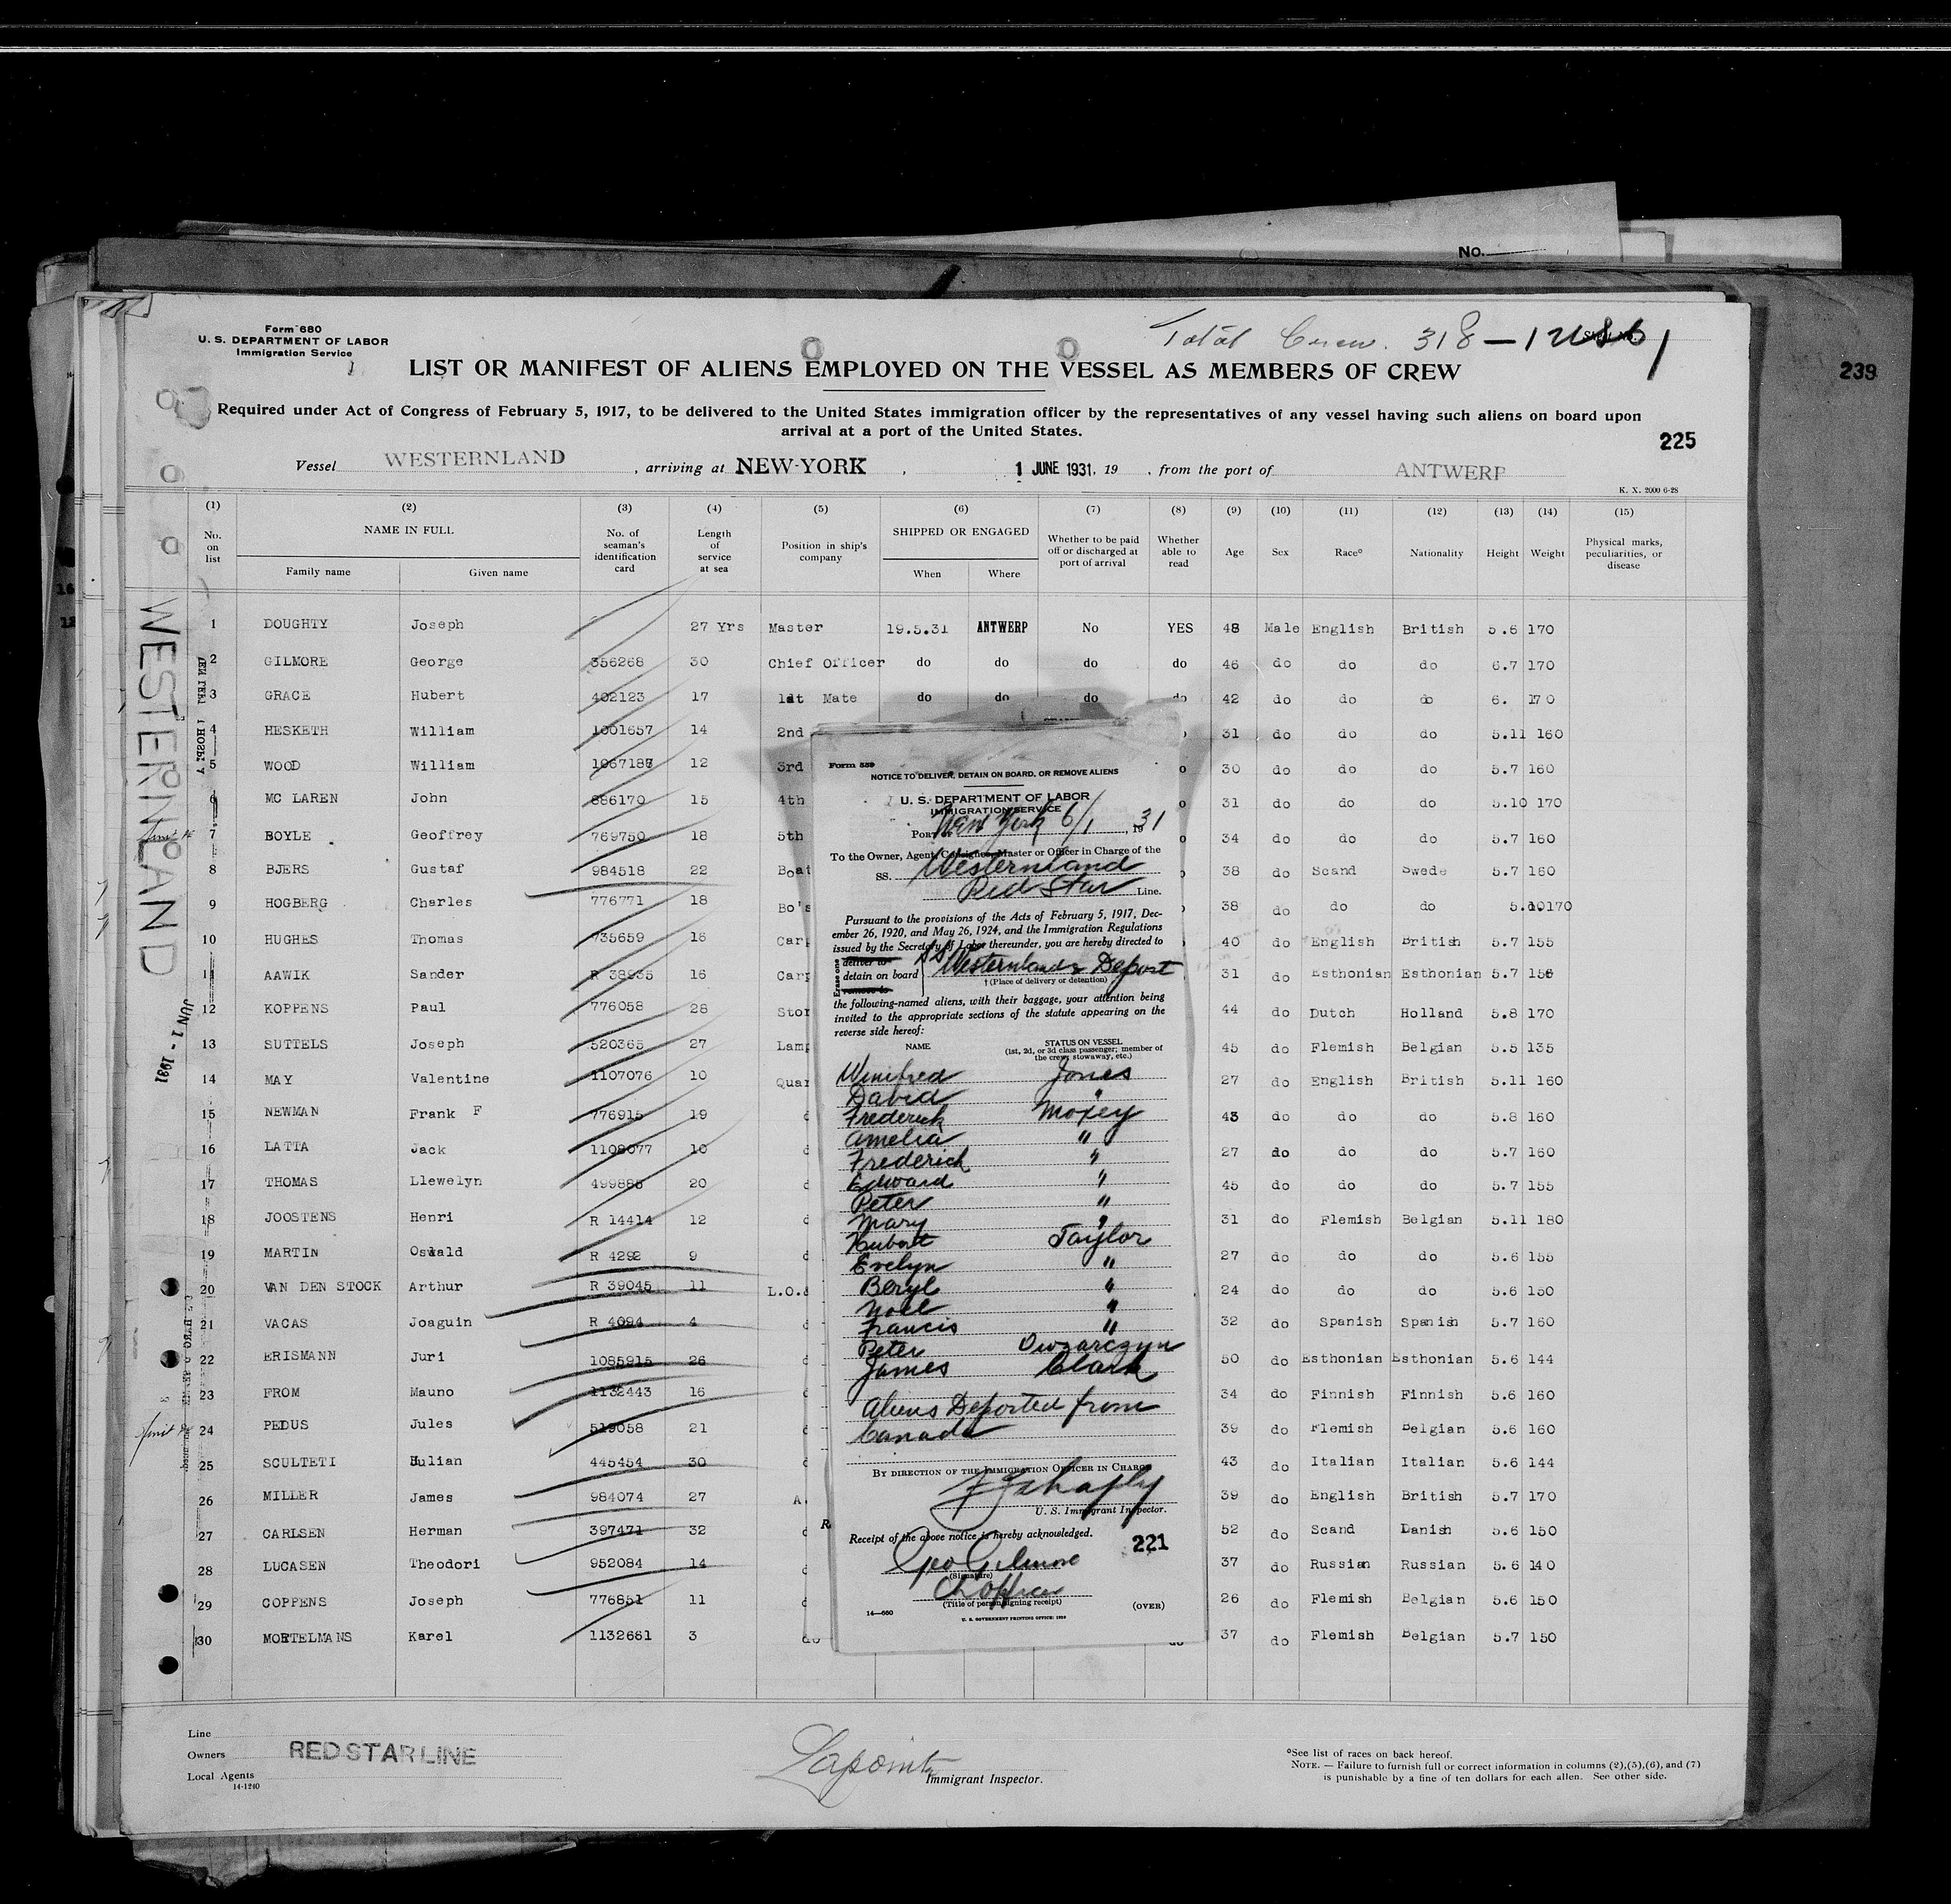 No.
239
Form 680
U. S. DEPARTMENT OF LABOR
Immigration Service
Total Crew. 318 — 1
LIST OR MANIFEST OF ALIENS EMPLOYED ON THE VESSEL AS MEMBERS OF CREW
Required under Act of Congress of February 5, 1917, to be delivered to the United States immigration officer by the representatives of any vessel having such aliens on board upon
arrival at a port of the United States.
225
Vessel WESTERNLAND, arriving at NEW-YORK, 1 JUNE 1931, 19, from the port of ANTWERP
K. X. 2000 6-28
(1) (2) (3) (4) (5) (6) (7) (8) (9) (10) (11) (12) (13) (14) (15)
No. on list NAME IN FULL Family name Given name No. of seaman's identification card Length of service at sea Position in ship's company SHIPPED OR ENGAGED When Where Whether to be paid off or discharged at port of arrival Whether able to read Age Sex Raceº Nationality Height Weight Physical marks, peculiarities, or disease
1 DOUGHTY Joseph 27 Yrs Master 19.5.31 ANTWERP No YES 48 Male English British 5.6 170
2 GILMORE George 356268 30 Chief Officer do do do do 46 do do do 6.7 170
3 GRACE Hubert 402123 17 1dt Mate do do do do 42 do do do 6. 170
4 HESKETH William 1001657 14 2nd 31 do do do 5.11 160
5 WOOD William 1067187 12 3rd 30 do do do 5.7 160
6 MC LAREN John 886170 15 4th 31 do do do 5.10 170
7 BOYLE Geoffrey 769750 18 5th 34 do do do 5.7 160
8 BJERS Gustaf 984518 22 Boat 38 do Scand Swede 5.7 160
9 HOGBERG Charles 776771 18 Bo's 38 do do do 5.10 170
10 HUGHES Thomas 735659 16 Carp 40 do English British 5.7 155
11 AAWIK Sander R 38935 16 Carp 31 do Esthonian Esthonian 5.7 156
12 KOPPENS Paul 776058 28 Stor 44 do Dutch Holland 5.8 170
13 SUTTELS Joseph 520365 27 Lamp 45 do Flemish Belgian 5.5 135
14 MAY Valentine 1107076 10 Quar 27 do English British 5.11 160
15 NEWMAN Frank F 776915 19 43 do do do 5.8 160
16 LATTA Jack 1108077 10 27 do do do 5.7 160
17 THOMAS Llewelyn 499885 20 45 do do do 5.7 155
18 JOOSTENS Henri R 14414 12 31 do Flemish Belgian 5.11 180
19 MARTIN Oswald R 4292 9 27 do do do 5.6 155
20 VAN DEN STOCK Arthur R 39045 11 L.O. 24 do do do 5.6 150
21 VACAS Joaguin R 4094 4 32 do Spanish Spanish 5.7 160
22 ERISMANN Juri 1085915 26 50 do Esthonian Esthonian 5.6 144
23 FROM Mauno 1132443 16 34 do Finnish Finnish 5.6 160
24 PEDUS Jules 519058 21 39 do Flemish Belgian 5.6 160
25 SCULTETI Julian 445454 30 43 do Italian Italian 5.6 144
26 MILLER James 984074 27 A. 39 do English British 5.7 170
27 CARLSEN Herman 397471 32 52 do Scand Danish 5.6 150
28 LUCASEN Theodori 952084 14 37 do Russian Russian 5.6 140
29 COPPENS Joseph 776851 11 26 do Flemish Belgian 5.6 150
30 MORTELMANS Karel 1132661 3 do do 37 do Flemish Belgian 5.7 150
WESTERNLAND
JUN 1 - 1931
Form 559
NOTICE TO DELIVER, DETAIN ON BOARD, OR REMOVE ALIENS
U. S. DEPARTMENT OF LABOR
IMMIGRATION SERVICE
Port of New York 6/1, 1931
To the Owner, Agent, Consignee, Master or Officer in Charge of the
SS. Westernland
Red Star Line.
Pursuant to the provisions of the Acts of February 5, 1917, Dec-
ember 26, 1920, and May 26, 1924, and the Immigration Regulations
issued by the Secretary of Labor thereunder, you are hereby directed to
Erase one
deliver to
detain on board SS Westernland & Deport
remove to
†(Place of delivery or detention)
the following-named aliens, with their baggage, your attention being
invited to the appropriate sections of the statute appearing on the
reverse side hereof:
NAME STATUS ON VESSEL
(1st, 2d, or 3d class passenger; member of
the crew; stowaway, etc.)
Winifred Jones
David "
Frederick Moxey
Amelia "
Frederick "
Edward "
Peter "
Mary "
Hubert Taylor
Evelyn "
Beryl "
Noel "
Francis "
Peter Owzarczyn
James Clark
Aliens Deported from
Canada
BY DIRECTION OF THE IMMIGRATION OFFICER IN CHARGE
U. S. Immigrant Inspector.
Receipt of the above notice is hereby acknowledged.
221
Geo Gilmore
(Signature)
Ch Officer
(Title of person signing receipt)
14—660
U. S. GOVERNMENT PRINTING OFFICE: 1929
(OVER)
Line
Owners RED STAR LINE
Local Agents
14-1240
Lapointe
Immigrant Inspector.
ºSee list of races on back hereof.
NOTE. — Failure to furnish full or correct information in columns (2),(5),(6), and (7)
is punishable by a fine of ten dollars for each alien. See other side.